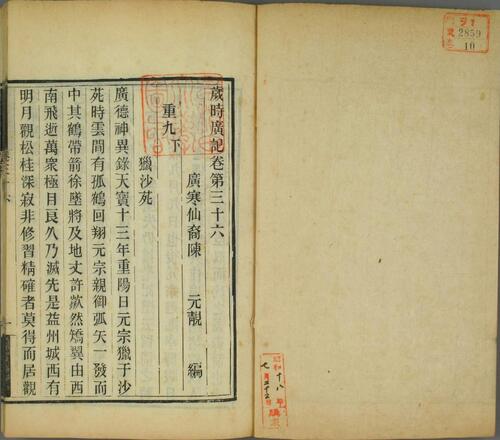 歲時廣記卷第三十六
廣寒仙裔陳 元靚 編
重九下
獵沙苑
廣德神異錄天寶十三年重陽日元宗獵于沙
苑時雲間有孤鶴回翔元宗親御弧矢一發而
中其鶴帶箭徐墜將及地丈許歘然矯翼由西
南飛逝萬衆極目良久乃滅先是益州城西有
明月觀松桂深寂非修習精確者莫得而居觀
2859
10
昭和十八
七月三十
購求